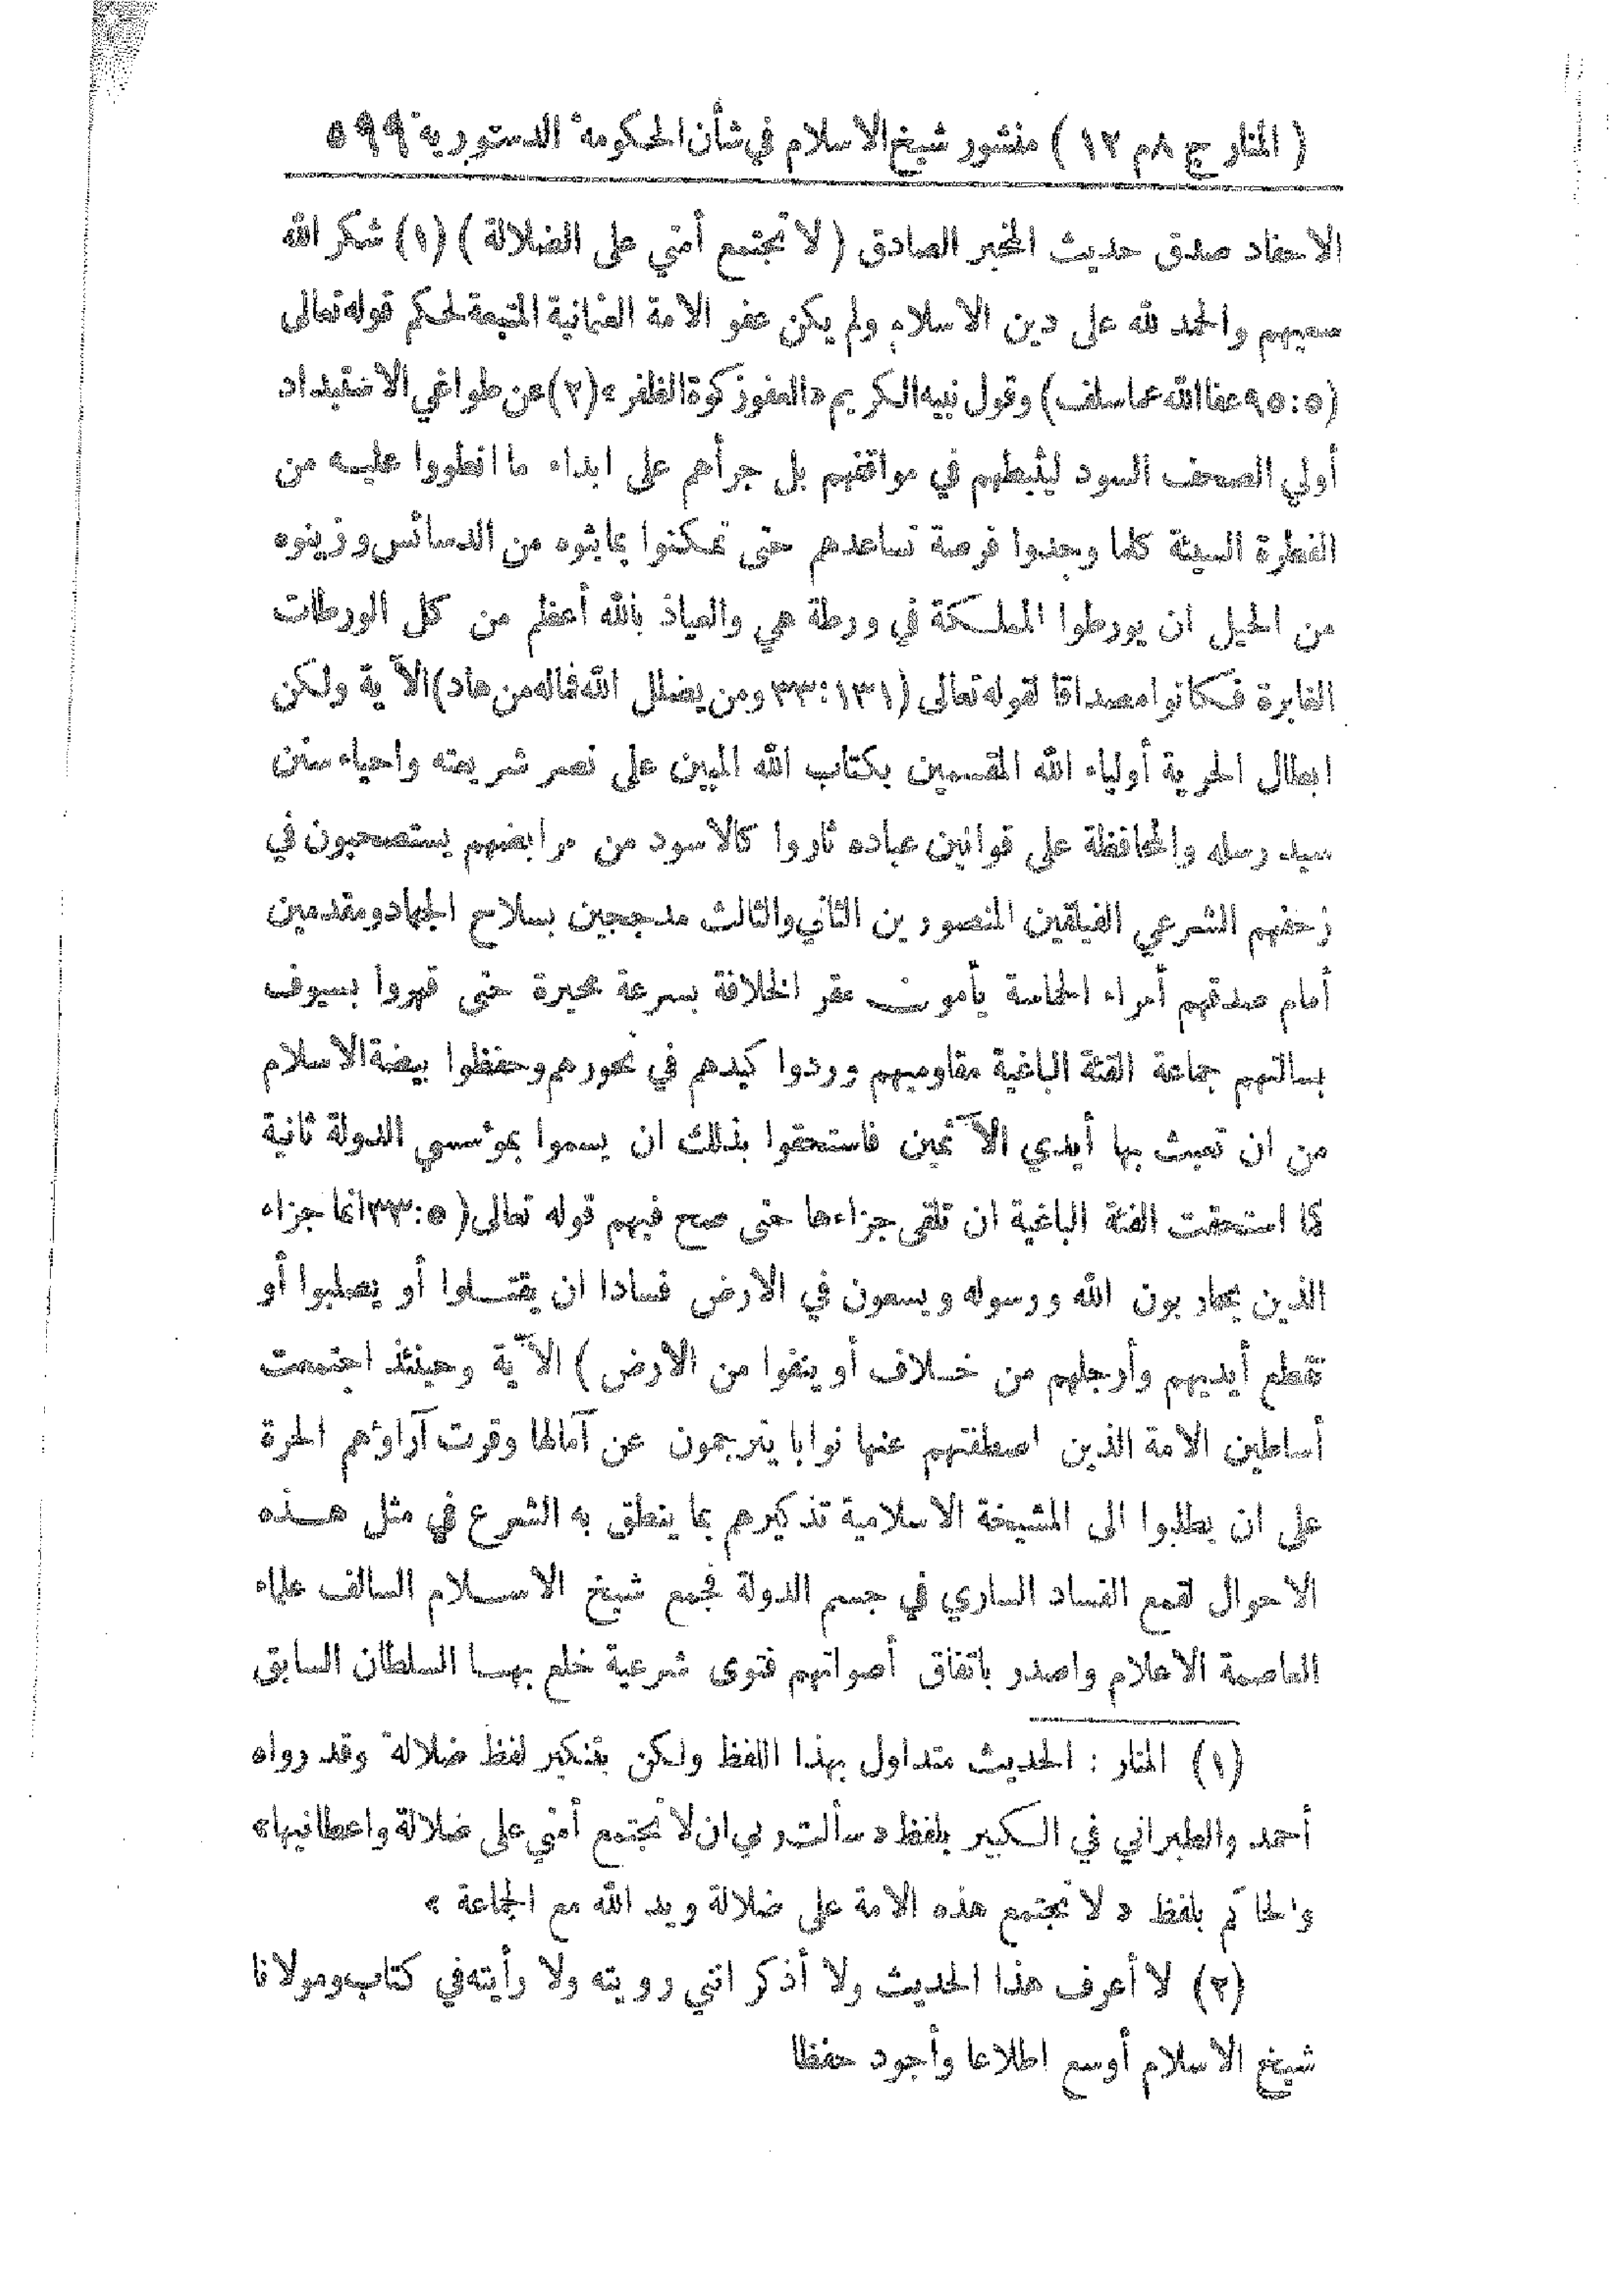 ( المنار ج ٨ م ١٢ ) منشور شيخ الاسلام في شأن الحكومة الدستورية ٥٩٩
الاحفاد صدق حديث المخبر الصادق ( لا تجتمع أمتي على الضلالة ) (١) شكر الله
سعيهم والحمد لله على دين الاسلام ولم يكن عفو الامة العثمانية المتبعة لحكم قوله تعالى
(٩٥:٥ عفا الله عما سلف) وقول نبيه الكريم «العفو زكوة الظفر» (٢) عن طواغي الاستبداد
أولي الصحف السود ليثبطهم في مواقفهم بل جرأهم على ابداء ما انطووا عليه من
الفطرة السيئة كلما وجدوا فرصة تساعدهم حتى تمكنوا بما بثوه من الدسائس وزينوه
من الحيل ان يورطوا المملكة في ورطة هي والعياذ بالله أعظم من كل الورطات
الغابرة فكانوا مصداقا لقوله تعالى (٣٣:١٣١ ومن يضلل الله فماله من هاد) الآية ولكن
ابطال الحرية أولياء الله المقسمين بكتاب الله المبين على نصر شريعته واحياء سنن
سيد رسله والمحافظة على قوانين عباده ثاروا كالاسود من مرابضهم يستصحبون في
زحفهم الشرعي الفيلقين المنصورين الثاني والثالث مدججين بسلاح الجهاد ومقدمين
أمام صدقهم أمراء الحماسة يأمون مقر الخلافة بسرعة محيرة حتى قهروا بسيوف
بسالتهم جماعة الفئة الباغية مقاوميهم وردوا كيدهم في نحورهم وحفظوا بيضة الاسلام
من ان تعبث بها أيدي الآثمين فاستحقوا بذلك ان يسموا بمؤسسي الدولة ثانية
كما استحقت الفئة الباغية ان تلقى جزاءها حتى صح فيهم قوله تعالى ( ٣٣:٥ انما جزاء
الذين يحاربون الله ورسوله ويسعون في الارض فسادا ان يقتلوا أو يصلبوا أو
تقطع أيديهم وأرجلهم من خلاف أو ينفوا من الارض ) الآية وحينئذ اجتمعت
أساطين الامة الذين اصطفتهم عنها نوابا يترجمون عن آمالها وقرت آراؤهم الحرة
على ان يطلبوا الى المشيخة الاسلامية تذكيرهم بما ينطق به الشرع في مثل هذه
الاحوال لقمع الفساد الساري في جسم الدولة فجمع شيخ الاسلام السالف علماء
العاصمة الاعلام واصدر باتفاق أصواتهم فتوى شرعية خلع بها السلطان السابق
(١) المنار : الحديث متداول بهذا اللفظ ولكن بتنكير لفظ ضلالة وقد رواه
أحمد والطبراني في الكبير بلفظ « سألت ربي ان لا تجتمع أمتي على ضلالة واعطانيها»
والحاكم بلفظ « لا تجتمع هذه الامة على ضلالة ويد الله مع الجماعة »
(٢) لا أعرف هذا الحديث ولا أذكر انني رويته ولا رأيته في كتاب ومولانا
شيخ الاسلام أوسع اطلاعا وأجود حفظا